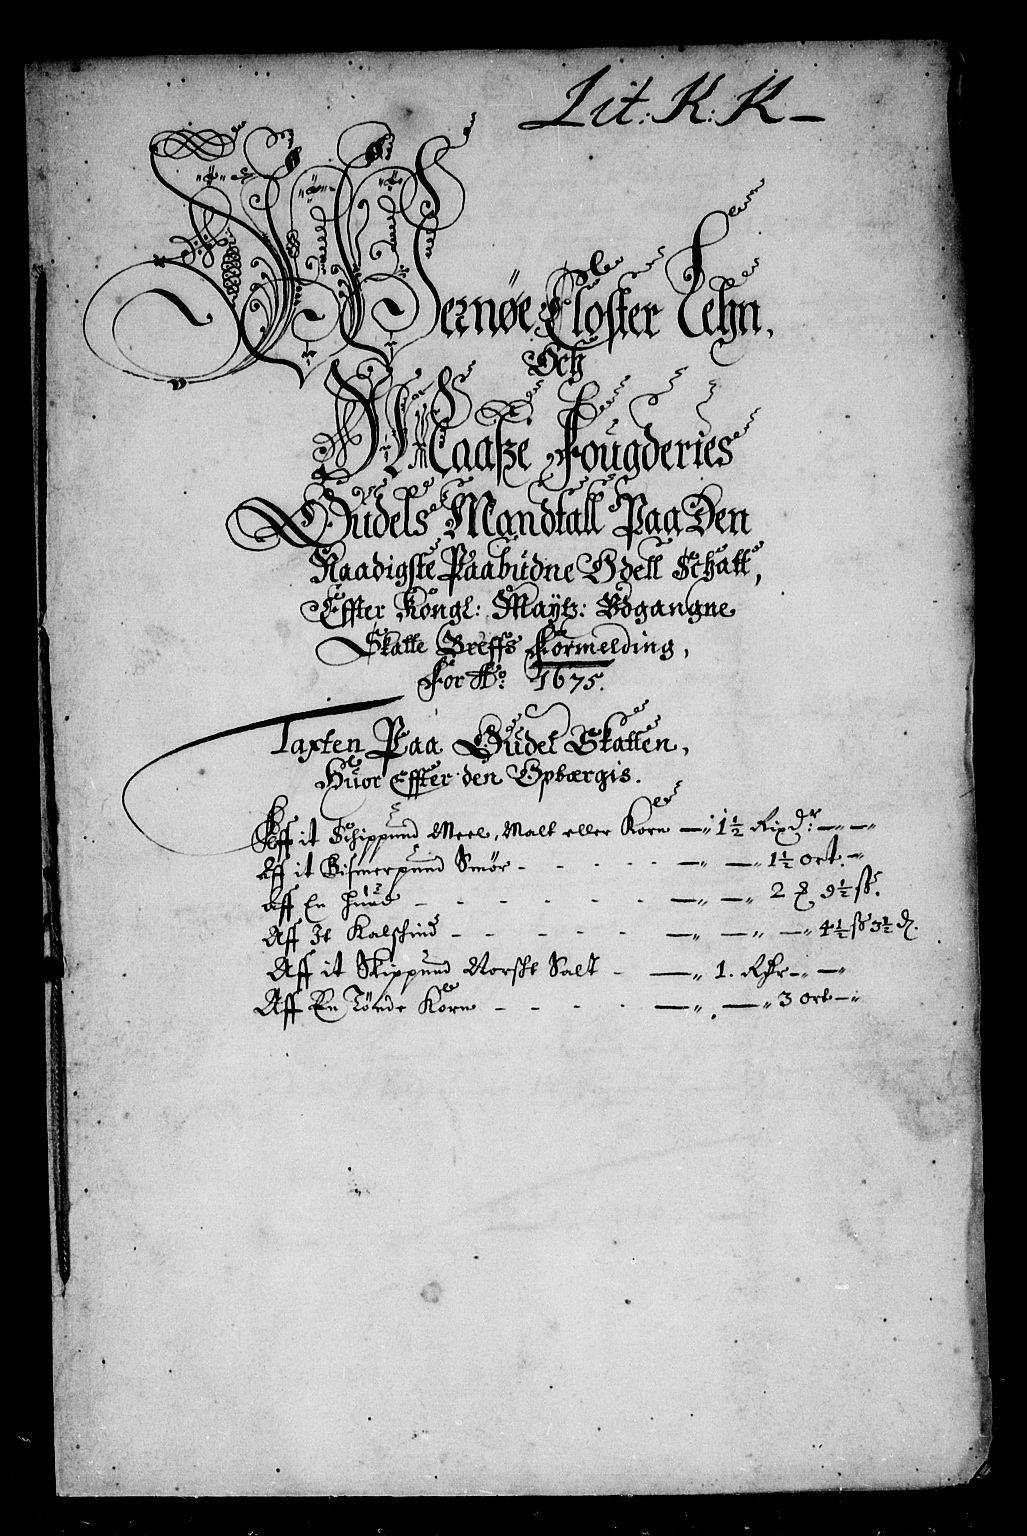 Lit: K: K
Wernøe Closter Lehn,
Och
Maaße Fougderies
Oudels Mandtall Paa Den
Naadigste Paabudne Odell Schatt,
Effter Kongl: Mayts: Udgangne
Skatte Breffs Formelding,
For Ao: 1675.
Taxten Paa Oudel Skatten,
Huor Effter den Opbærgis.
Aff it Schippund Meel, Malt eller Korn — " 1½ Rixdr: — " —
Aff it Bismerpund Smør - — " — " 1½ ort. — "
Aff En Huud - — " — " 2 9½ ss.
Aff It Kalfskind - — " — " — " 4½ ss 3½ d.
Aff it Skippund Norskt Salt - — " 1. Rdr — " — "
Aff En Tønde Korn - — " — " 3 ort — "